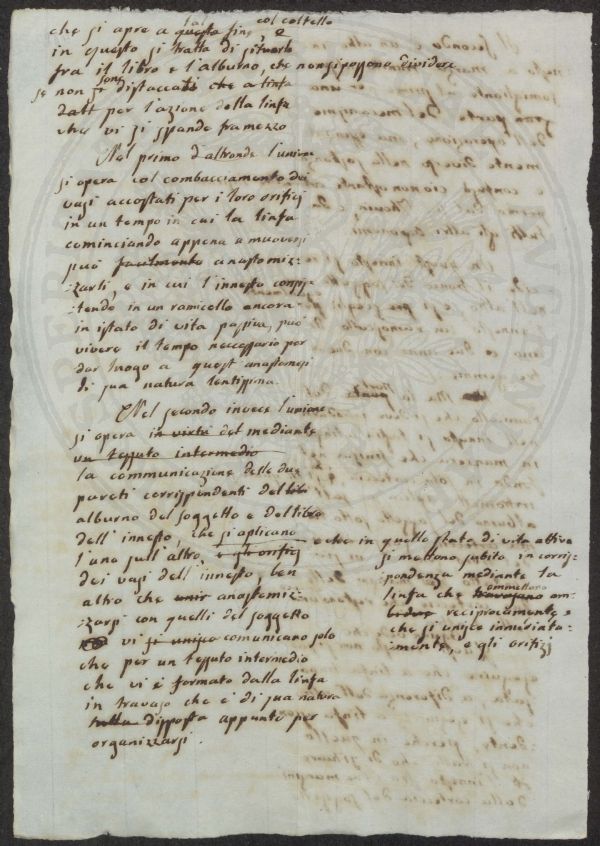 tal col coltello
che si apre a questo fine, e
in questo si tratta di situarlo
fra il libro e l'alburno, che non si possono dividere
se non sono distaccati che a tinfa
datt per l'azione della linfa
che vi si spande framezzo
Nel primo d'altronde l'unione
si opera col combacciamento dei
vasi accostati per i loro orifici
in un tempo in cui la linfa
cominciando appena a muoversi
può facilmente anastomiz-
:zarli, e in cui l'innesto consis-
:tendo in un ramicello ancora
in istato di vita passiva, può
vivere il tempo neccessario per
dar luogo a quest anastomosi
di sua natura lentissima.
Nel secondo invece l'unione
si opera in virtù del mediante
un tessuto intermedio
la communicazione delle due
pareti corrispondenti del
alburno del soggetto e del libro
dell'innesto, che si aplicano
l'uno sull'altro, e gli orifizj
dei vasi dell'innesto, ben
altro che unir anastomiz-
:zarsi con quelli del soggetto
vi si unisce comunicano solo
che per un tessuto intermedio
che vi è formato dalla linfa
in travaso che è di sua natura
tutta disposta appunto per
organizzarsi.
e che in quello stato di vita attiva
si mettono subito in corris-
:pondenza mediante la
linfa che travasano
ommettono
reciprocamente e
che si unisce immediata-
:mente, e gli orifizj